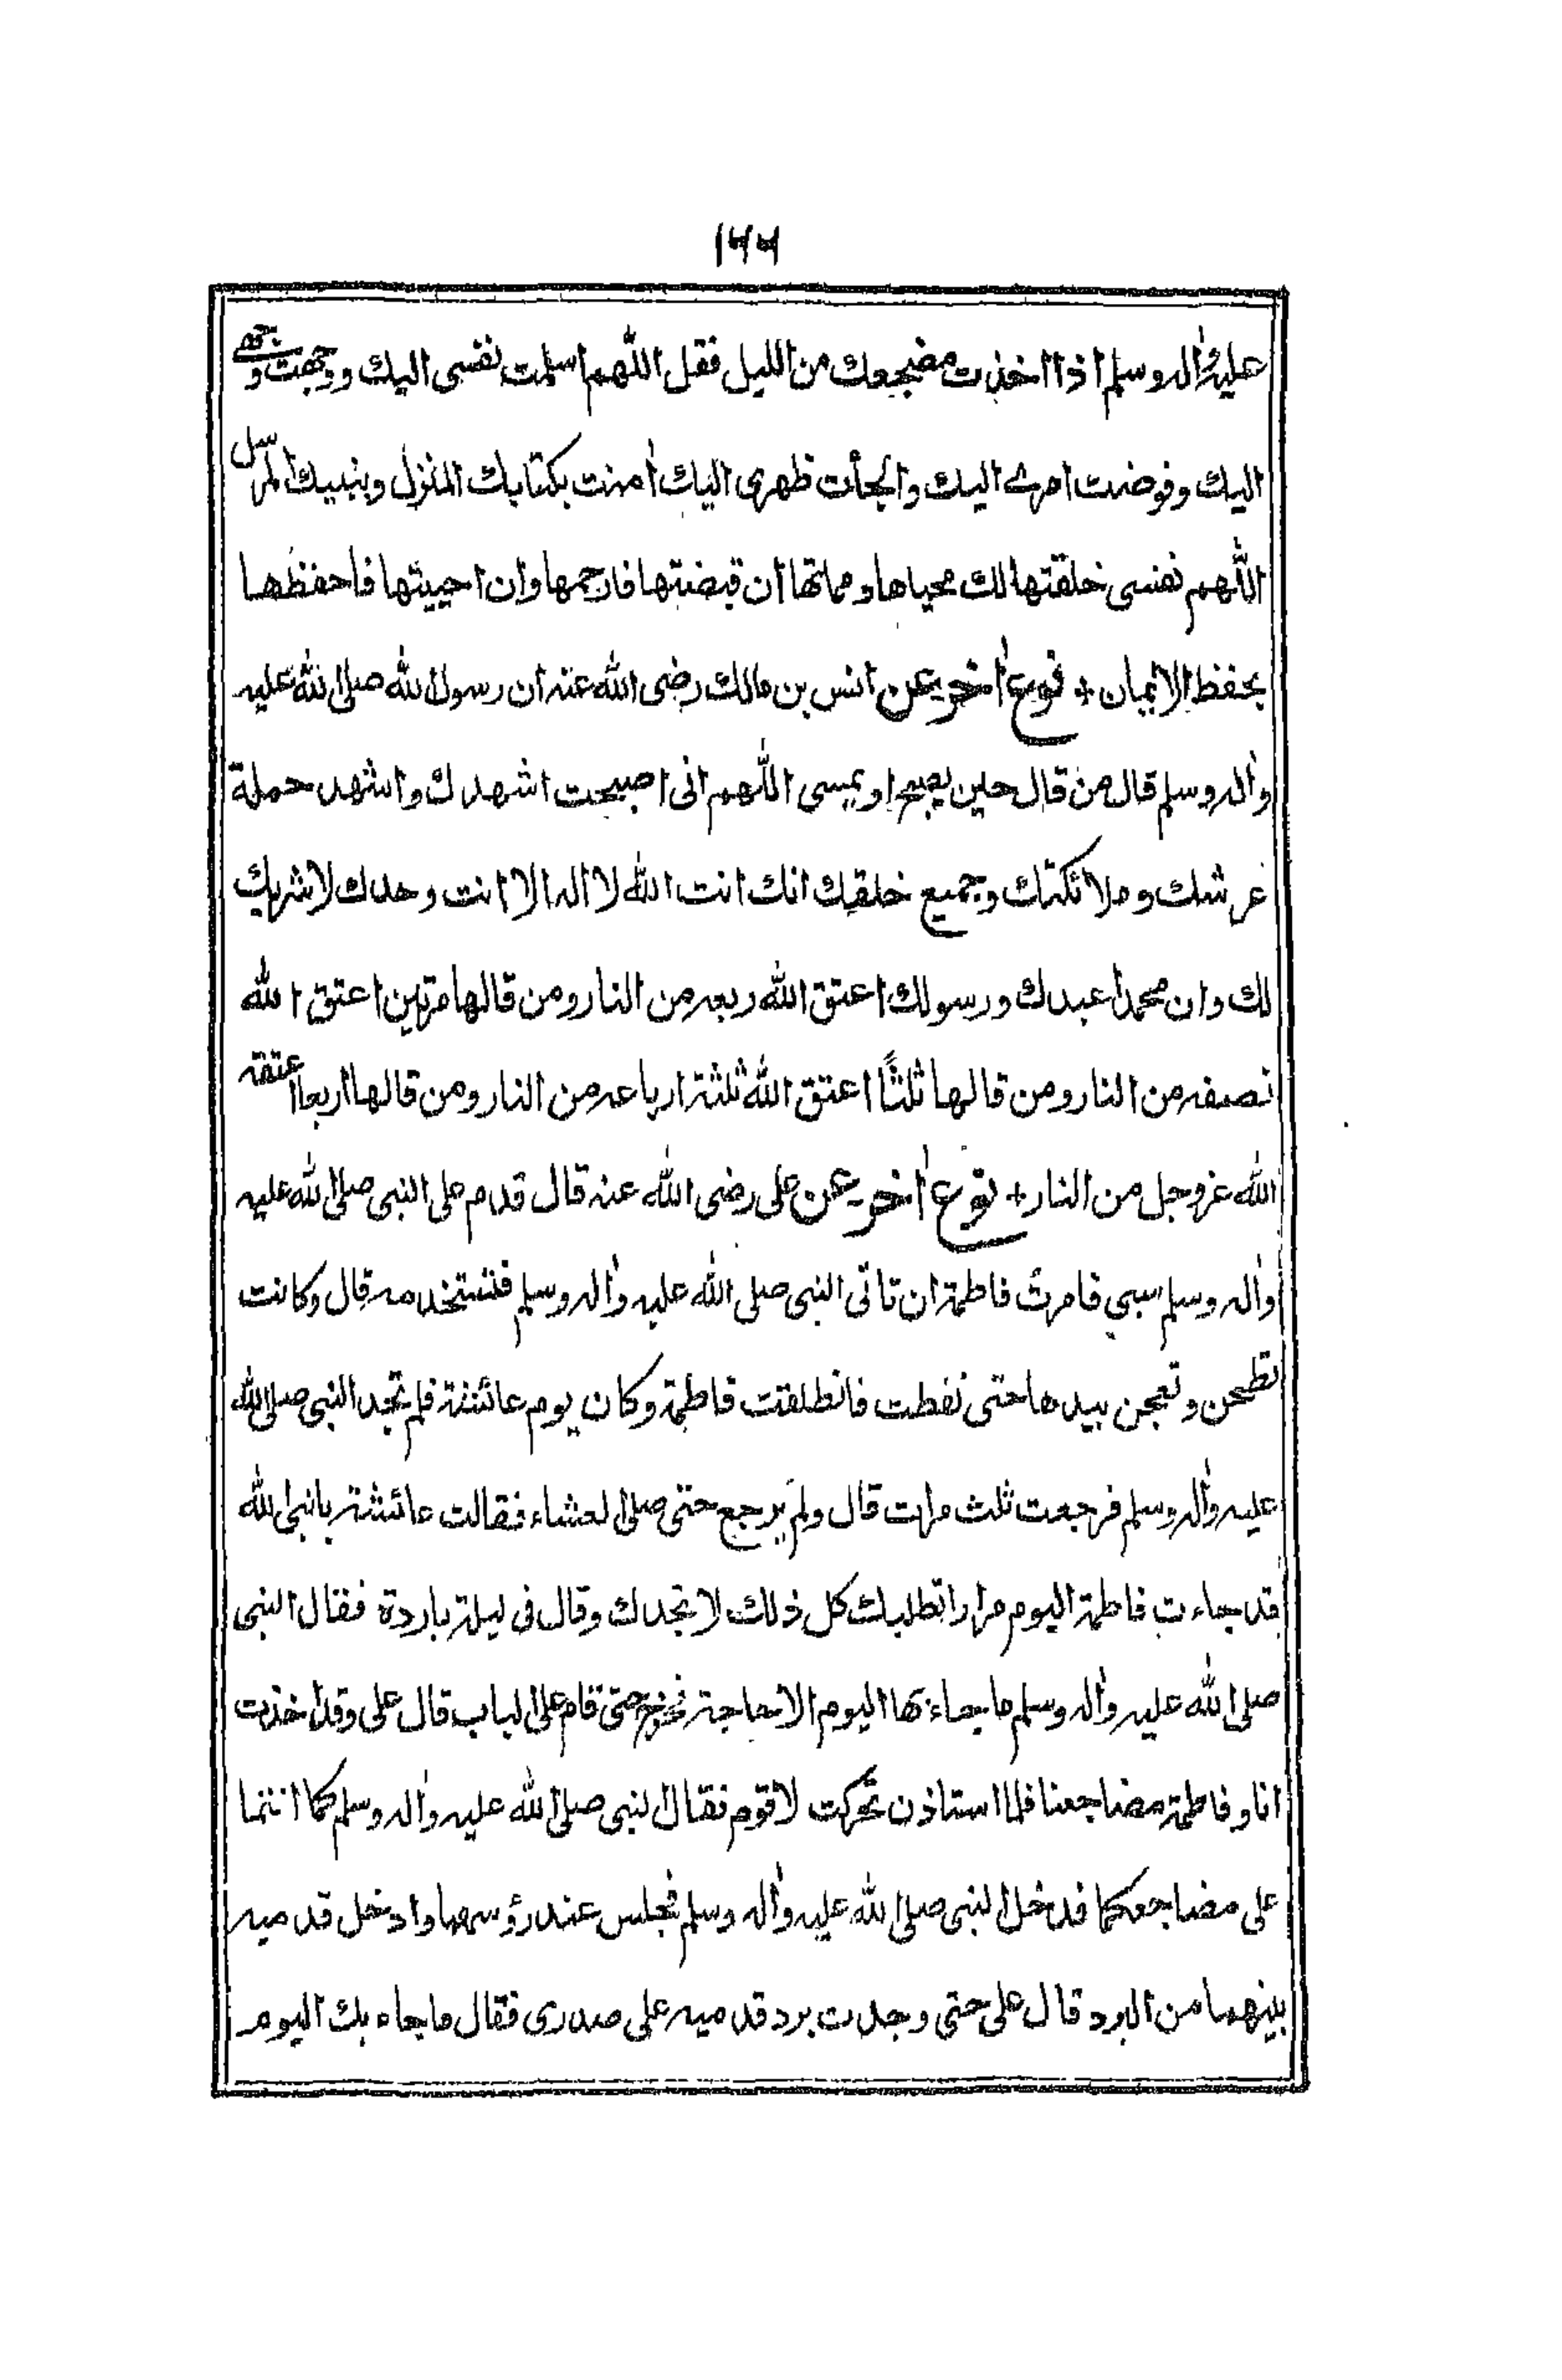 ۱۶۶
عليه واٰله وسلم اذا اخذت مضجعك من الليل فقل اللّٰهم اسلمت نفسى اليك ووجهت وجهى
اليك وفوضت امرے اليك والجأت ظهرى اليك اٰمنت بكتابك المنزل ونبيك المرسل
اللّٰهم نفسى خلقتها لك محياها ومماتها ان قبضتها فارحمها وان احييتها فاحفظها
بحفظ الايمان + نوع اٰخر عن انس بن مالك رضى الله عنه ان رسول الله صلى الله عليه
واٰله وسلم قال من قال حين يصبح او يمسى اللّٰهم انى اصبحت اشهدك واشهد حملة
عرشك وملائكتك وجميع خلقك انك انت الله لا اله الا انت وحدك لا شريك
لك وان محمدا عبدك ورسولك اعتق الله ربعه من النار ومن قالها مرتين اعتق الله
نصفه من النار ومن قالها ثلثًا اعتق الله ثلثة ارباعه من النار ومن قالها اربعا اعتقه
الله عز وجل من النار + نوع اٰخر عن على رضى الله عنه قال قدم على النبى صلى الله عليه
واٰله وسلم سبى فامرت فاطمة ان تاتى النبى صلى الله عليه واٰله وسلم فتستخدمه قال وكانت
تطحن وتعجن بيدها حتى نفطت فانطلقت فاطمة وكان يوم عائشة فلم تجد النبى صلى الله
عليه واٰله وسلم فرجعت ثلث مرات قال ولم يرجع حتى صلى العشاء فقالت عائشة يا نبى الله
قد جاءت فاطمة اليوم مرارا تطلبك كل ذلك لا تجدك وقال فى ليلة باردة فقال النبى
صلى الله عليه واٰله وسلم ما جاء بها اليوم الا حاجة فخرج حتى قام على الباب قال على وقد اخذت
انا وفاطمة مضاجعنا فلما استاذن تحركت لاقوم فقال النبى صلى الله عليه واٰله وسلم كما انتما
على مضاجعكما فدخل النبى صلى الله عليه واٰله وسلم فجلس عند رؤسهما وادخل قدميه
بينهما من البرد قال على حتى وجدت برد قدميه على صدرى فقال ما جاء بك اليوم